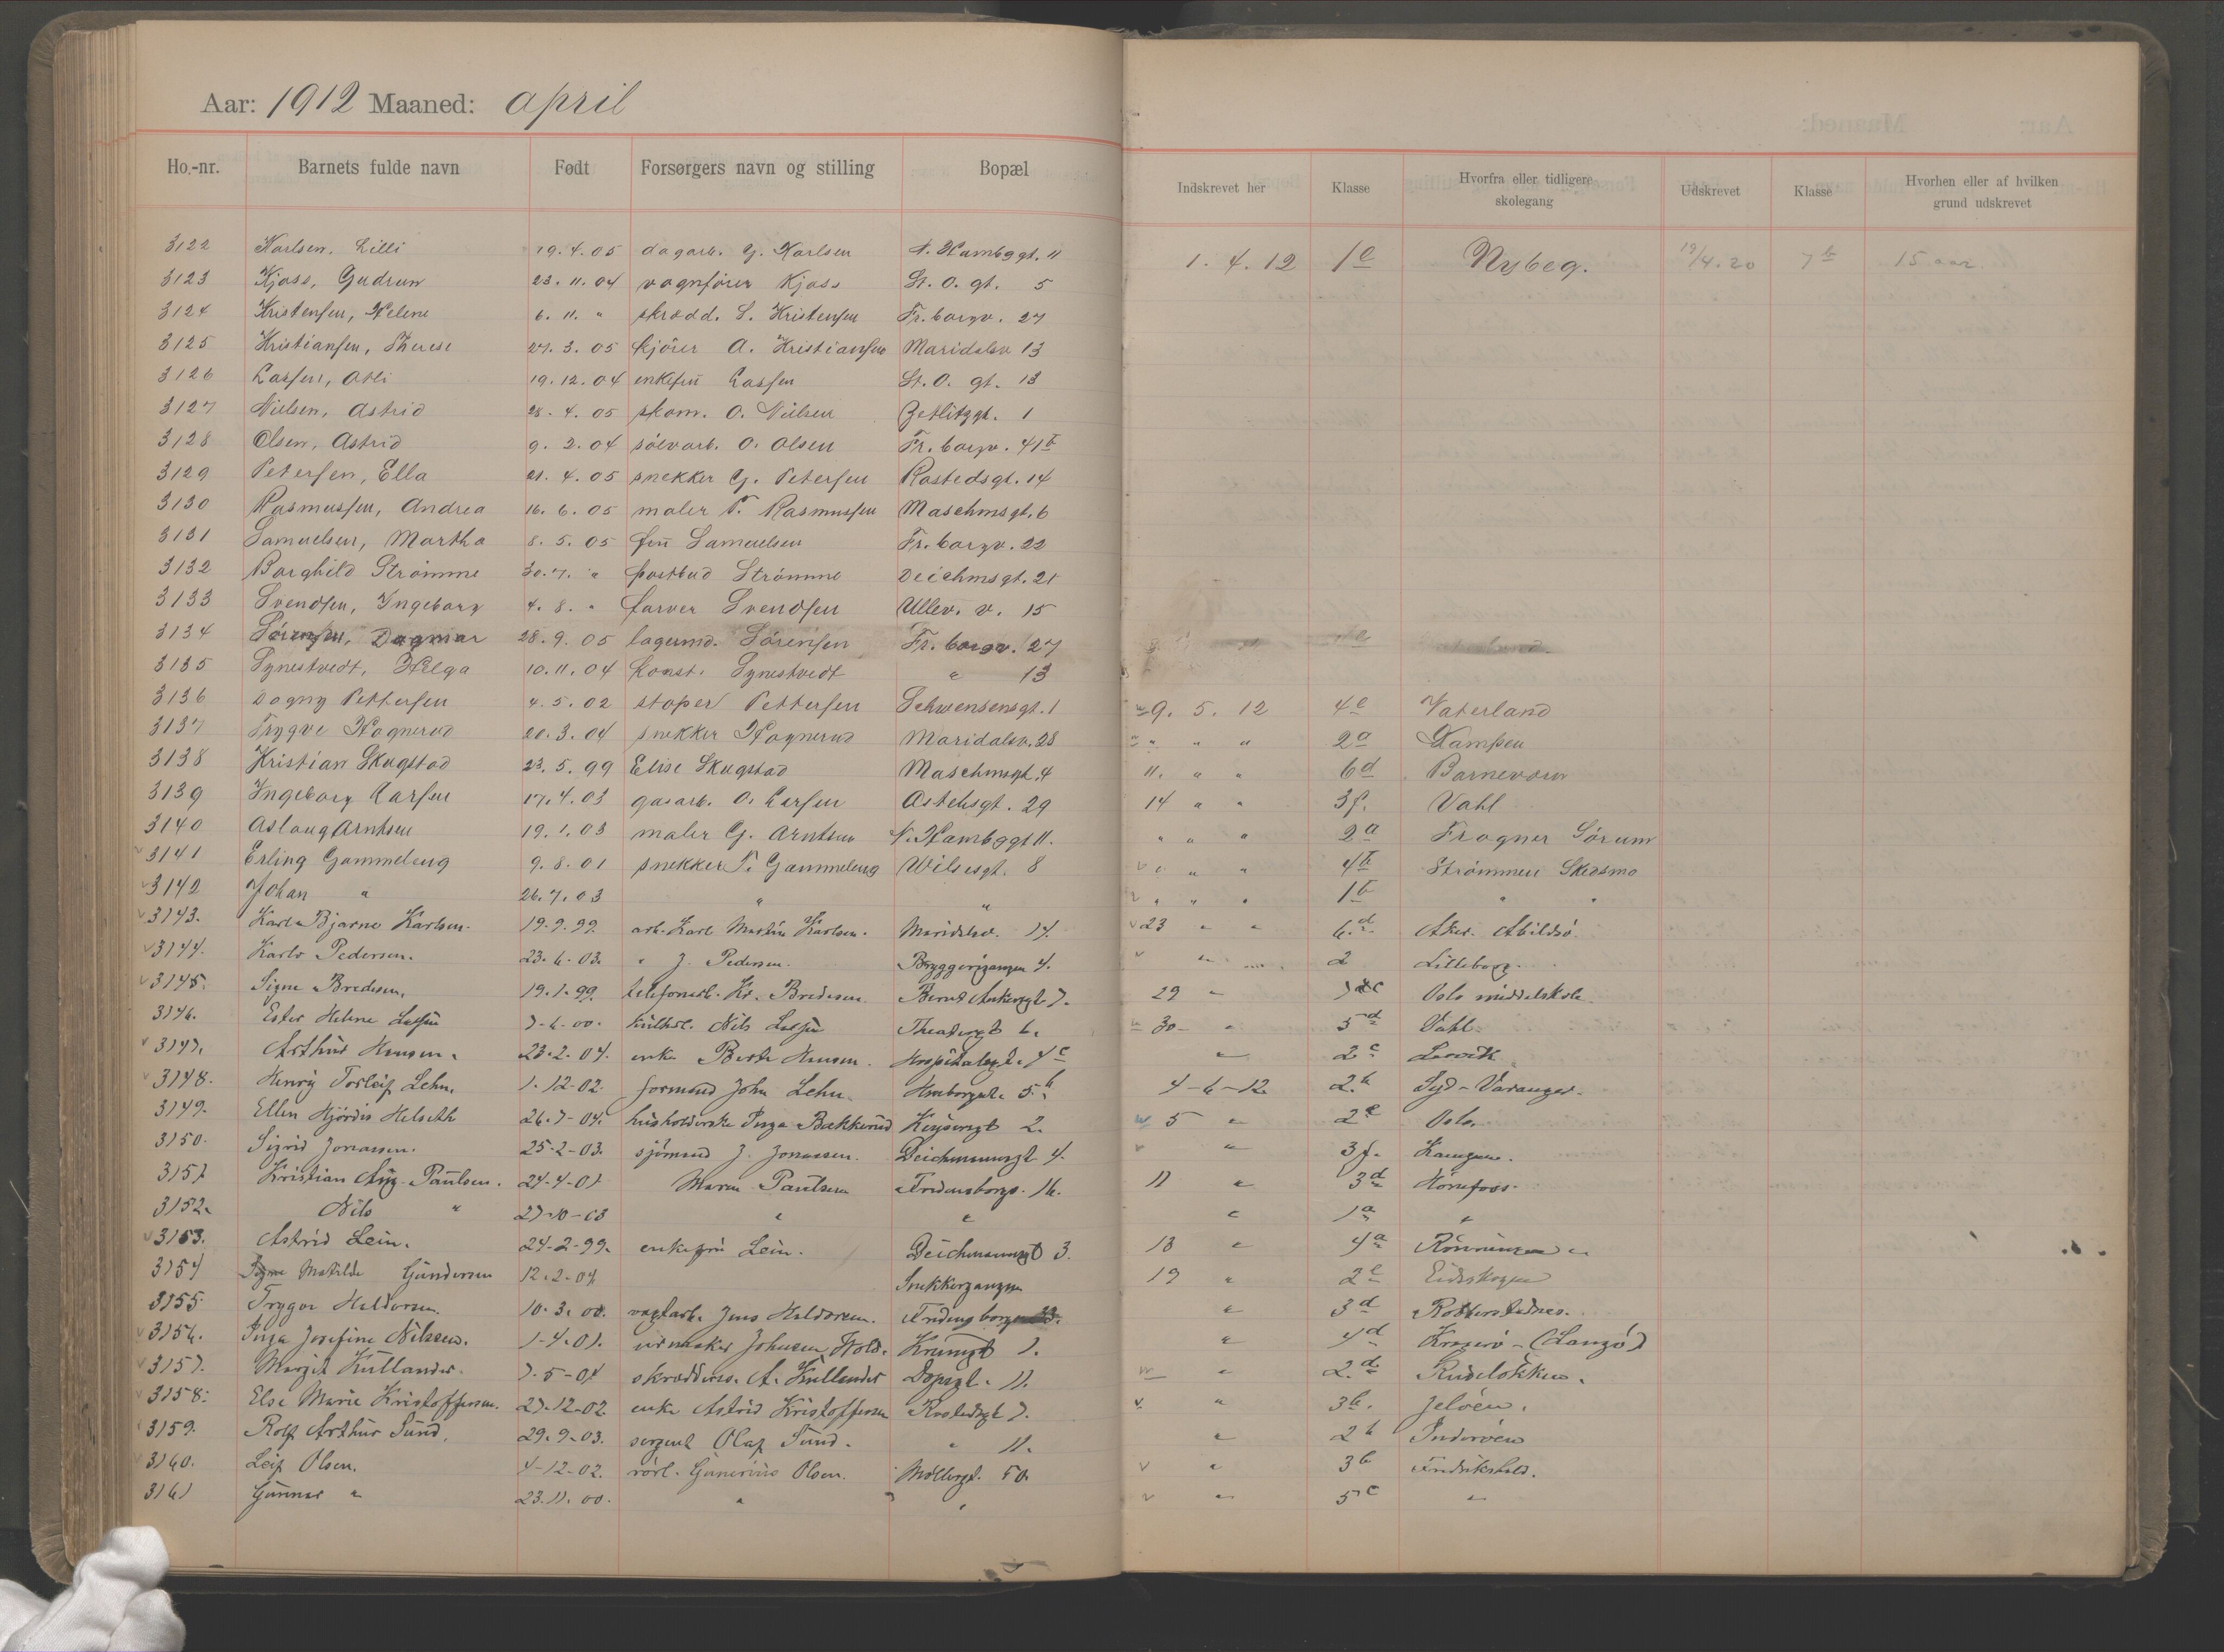 Aar: 1912 Maaned: april
Ho.-nr. Barnets fulde navn Født Forsørgers navn og stilling Bopæl Indskrevet her Klasse Hvorfra eller tidligere skolegang Udskrevet Klasse Hvorhen eller af hvilken grund udskrevet
3122 Karlsen, Lilli 19.4.05 dagarb. G. Karlsen N. Hambggt. 11 1.4.12 1e Nybeg. 19/4.20 7b 15 aar
3123 Kjoss, Gudrun 23.11.04 vognfører Kjoss St. O. gt. 5
3124 Kristensen, Helene 6.11. " skrædd. S. Kristensen Fr. borgv. 27
3125 Kristiansen, Therese 27.3.05 kjører A. Kristiansen Maridalsv 13
3126 Larsen, Otli 19.12.04 enkefru Larsen St. O. gt. 13
3127 Nielsen, Astrid 28.4.05 skom. O. Nielsen Zetlitzgt. 1
3128 Olsen, Astrid 9.2.04 sølvarb. O. Olsen Fr. borgv. 41b
3129 Petersen, Ella 21.4.05 snekker G. Petersen Rostedsgt. 14
3130 Rasmussen, Andrea 16.6.05 maler P. Rasmussen Maschmsgt. 6
3131 Samuelsen, Martha 8.5.05 fru Samuelsen Fr. borgv. 22
3132 Borghild Strømme 30.7. " postbud Strømme Deichmsgt. 21
3133 Svendsen, Ingeborg 4.8. " farver Svendsen Ullev. v. 15
3134 Sørensen, Dagmar 28.9.05 lagermd. Sørensen Fr. borgv. 27
3135 Synestvedt, Helga 10.11.04 konst. Synestvedt " 13
3136 Dagny Pettersen 4.5.02 støper Pettersen Schwensensgt. 1 9.5.12 4e Vaterland
3137 Trygve Hagnerud 20.3.04 snekker Hagnerud Maridalsv. 28 " " " 2a Kampen
3138 Kristian Skugstad 23.5.99 Elise Skugstad Maschmsgt. 4 11. " " 6d Barnevern
3139 Ingeborg Larsen 17.4.03 gasarb. O. Larsen Astehsgt. 29 14 " " 3f. Vahl
3140 Aslaug Arntsen 19.1.03 maler G. Arntsen N. Hambggt 11. " " " 2a Frogner Sørum
3141 Erling Gammeleng 9.8.01 snekker P. Gammeleng Wilsesgt. 8 " " " 4b Strømmen Skedsmo
3142 Johan " 26.7.03 " " " " " 1b " "
3143. Karl Bjarne Karlsen. 19.9.99. arb. Karl Martin Karlsen. Maridalsv. 14. 23 " " 6.d Aker. Abildsø.
3144. Karlo Pedersen. 23.6.03. " J. Pedersen. Bryggerigangen 4. " 2 Lilleborg.
3145. Signe Bredesen. 19.1.99. telefonarb. Kr. Bredesen Bernt Ankersgt 7. 29 " Oslo middelskole.
3146. Ester Helene Larsen 7-6-00. Nils Larsen Theatergt 6. 30 - " 5d Vahl.
3147. Arthur Hansen. 23.2.04. enke Berte Hansen. Hospitalsgt. 4c " 2c Larvik
3148. Henry Torleif Lehn. 1.12-02. formand John Lehn. 5.b 4-6-12. 2.b Syd-Varanger.
3149. Ellen Hjørdis Helseth 26.7-04. husholderske Inga Bækkerud Keysersgt 2. 5 " 2e Oslo.
3150. Sigrid Jonassen. 25-2-03. sjømand J. Jonassen. Deichmannsgt 4. " 3f.
3151 Kristian Aug. Paulsen. 24-4-01 Maren Paulsen Fredensborgv. 16. 11 " 3d Hønefoss.
3152. Nils " 27-10-03 " " " 1a "
3153. Astrid Lein. 24-2-99. enkefru Lein. Deichmannsgt 3. 13 " 4a
3154 Matilde Gundersen 12.2-04 Snekkergangen 19 " 2e Eidskogen
3155 Trygve Haldorsen. 10.3.00. Jens Haldorsen. Fredensborgv. " 3d
3156. Inga Josefine Nilsen. 1-4-01. urmaker Johnsen Wold. Krumgt 7. " 4d Kragerø - (Langø)
3157. Margit Kullander. 7.5-04 skrædders. A. Kullander Dopsgt. 11. " 2.d Rudeløkken.
3158. Else Marie Kristoffersen. 27-12-02. enke Astrid Kristoffersen Rostedsgt 7. " 3b. Jeløen.
3159. Rolf Arthur Sund. 29.9-03. sergent Olaf Sund. " 11. " 2b Inderøen
3160. Leif Olsen. 4-12-02. rørl. Gunerius Olsen. Møllergt. 50. " 3b Fredrikshald.
3161 Gunnar " 23.11.00. " " " 5c "